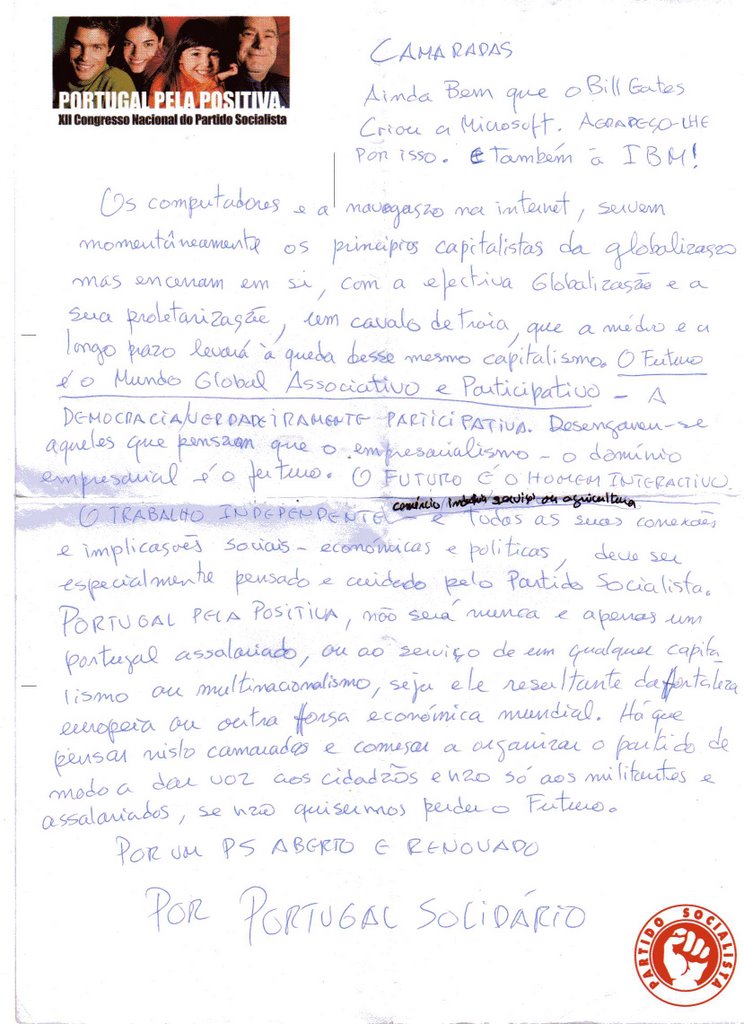 PORTUGAL PELA POSITIVA.
XII Congresso Nacional do Partido Socialista
CAMARADAS
Ainda Bem que o Bill Gates
Criou a Microsoft. AGRADEÇO-LHE
POR ISSO. E também à IBM!
Os computadores e a navegação na internet, servem
momentâneamente os princípios capitalistas da globalização
mas encerram em si, com a efectiva Globalização e a
sua proletarização, um cavalo de troia, que a médio e a
longo prazo levará à queda desse mesmo capitalismo. O Futuro
é o Mundo Global Associativo e Participativo - A
DEMOCRACIA VERDADEIRAMENTE PARTICIPATIVA. Desenganem-se
aqueles que pensam que o empresarialismo - o domínio
empresarial é o futuro. O FUTURO É O HOMEM INTERACTIVO.
comércio indústria serviços ou agricultura
O TRABALHO INDEPENDENTE - e todas as suas conexões
e implicações sociais - económicas e políticas, deve ser
especialmente pensado e cuidado pelo Partido Socialista.
PORTUGAL PELA POSITIVA, não será nunca e apenas um
portugal assalariado, ou ao serviço de um qualquer capita
lismo ou multinacionalismo, seja ele resultante da fortaleza
europeia ou outra força económica mundial. Há que
pensar nisto camaradas e começar a organizar o partido de
modo a dar voz aos cidadãos e não só aos militantes e
assalariados, se não quisermos perder o Futuro.
POR UM PS ABERTO E RENOVADO
POR PORTUGAL SOLIDÁRIO
PARTIDO SOCIALISTA